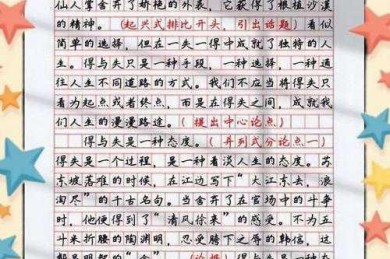 仙人掌舍弃了娇艳的外表，它获得了根植沙漠
的精神。(起兴式排比开头，引出话题)看似
简单的选择，但在一失一得中成就了独特的人
生。得与失只是一种手段，一种选择，一种通
往人生不同道路的方式。我们不应当将得失只
看为起点或者终点，而是在得失之间，成就我
们人生的漫漫路途。(提出中心论点)
得与失是一种态度。(并列式分论点一)
得失是一个过程，是一种看淡人生的态度。苏
东坡落难的时候，在江边写下“大江东去，浪
淘尽”的千古名句。当舍弃了在官场中的斗争
时，他便得到了“清风徐来”的感受。不为五
斗米折腰的陶渊明，忍受胯下之辱的韩信，这